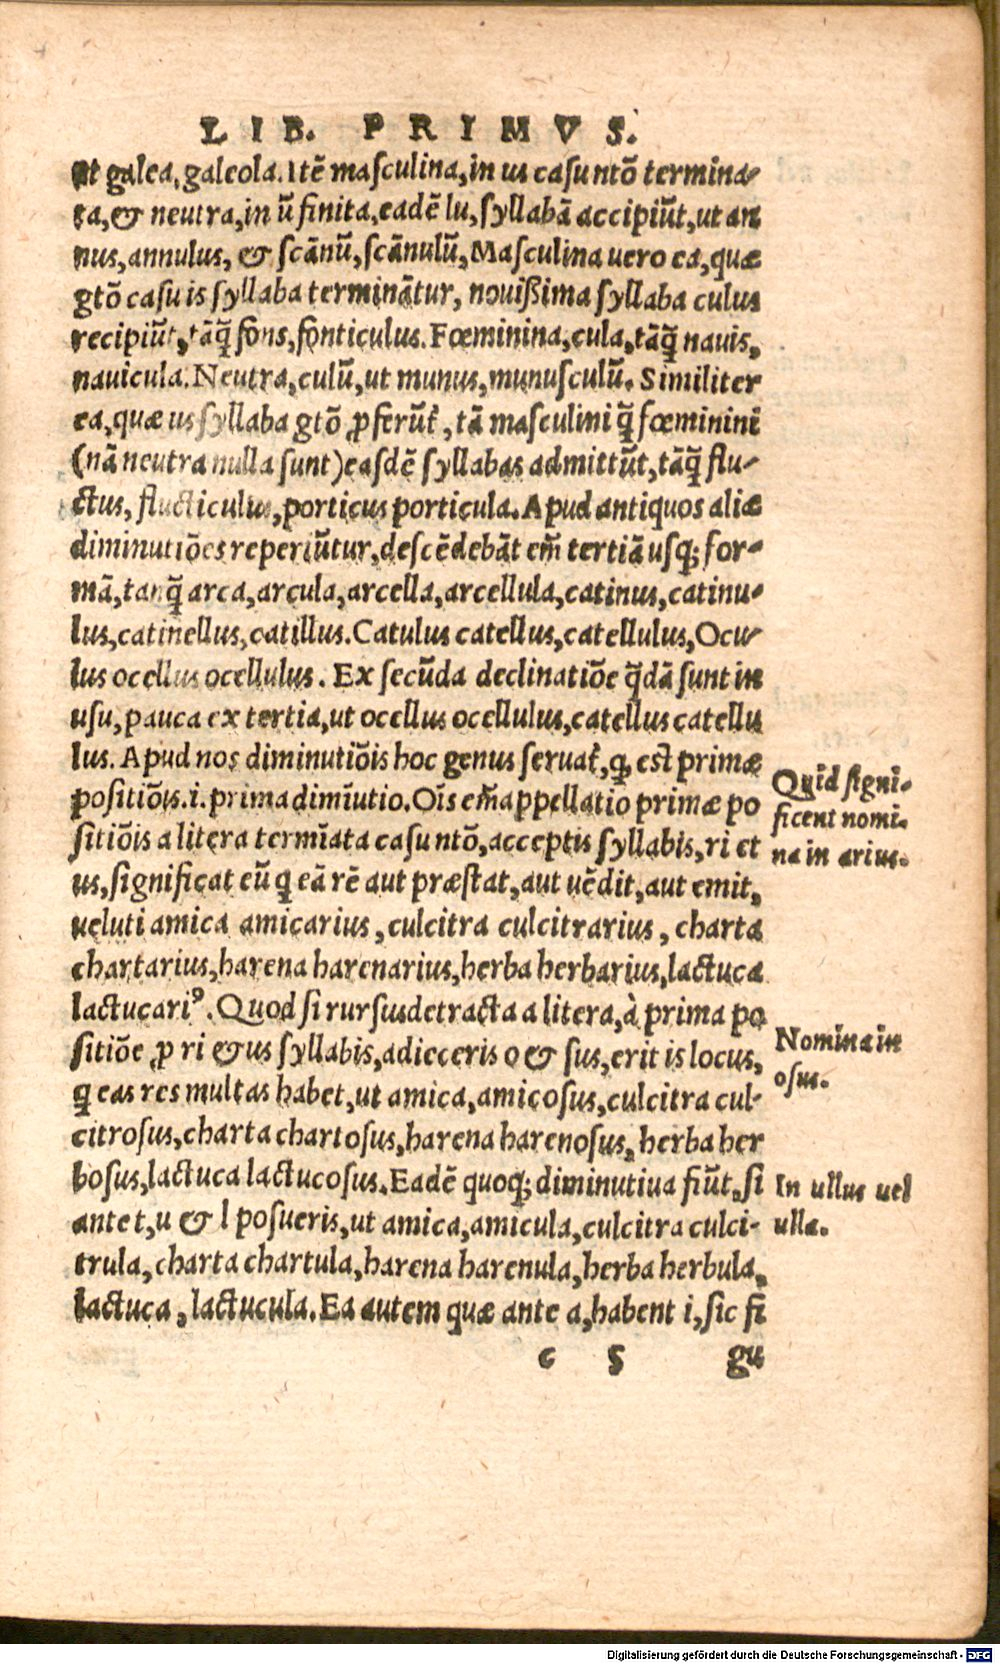 LIB. PRIMVS.
ut galea, galeola. Itē masculina, in us casu ntō termina-
ta, & neutra, in ū finita, eadē lu, syllabā accipiūt, ut an
nus, annulus, & scānū, scānulū, Masculina uero ea, quæ
gtō casu is syllaba terminātur, nouißima syllaba culus
recipiūt, tāq̃ fons, fonticulus. Fœminina, cula, tāq̃ nauis,
nauicula. Neutra, culū, ut munus, munusculū. Similiter
ea, quæ us syllaba gtō ꝓferūt, tā masculini q̃ fœminini
(nā neutra nulla sunt) easdē syllabas admittūt, tāq̃ flu-
ctus, flucticulus, porticus porticula. Apud antiquos aliæ
diminutiōes reperiūtur, descēdebāt em̄ tertiā usq; for-
mā, tanq̃ arca, arcula, arcella, arcellula, catinus, catinu-
lus, catinellus, catillus. Catulus catellus, catellulus, Ocu-
lus ocellus ocellulus. Ex secūda declinatiōe q̃dā sunt in
usu, pauca ex tertia, ut ocellus ocellulus, catellus catellu
lus. Apud nos diminutiōis hoc genus seruat̄, ꝙ est primæ
positiōis .i. prima dimīutio. Oīs em̄ appellatio primæ po
sitiōis a litera termīata casu ntō, acceptis syllabis, ri et
us, significat eū q eā rē aut præstat, aut uēdit, aut emit,
ueluti amica amicarius, culcitra culcitrarius, charta
chartarius, harena harenarius, herba herbarius, lactuca
lactucariꝰ. Quod si rursus detracta a litera, à prima po
sitiōe ꝓ ri & us syllabis, adieceris o & sus, erit is locus,
q eas res multas habet, ut amica, amicosus, culcitra cul-
citrosus, charta chartosus, harena harenosus, herba her
bosus, lactuca lactucosus. Eadē quoq; diminutiua fiūt, si
ante t, u & l posueris, ut amica, amicula, culcitra culci-
trula, charta chartula, harena harenula, herba herbula,
lactuca, lactucula. Ea autem quæ ante a, habent i, sic fi
c 5 gu
Quid signi-
ficent nomi-
na in arius.
Nomina in
osus.
In ullus uel
ulla.
Digitalisierung gefördert durch die Deutsche Forschungsgemeinschaft - DFG